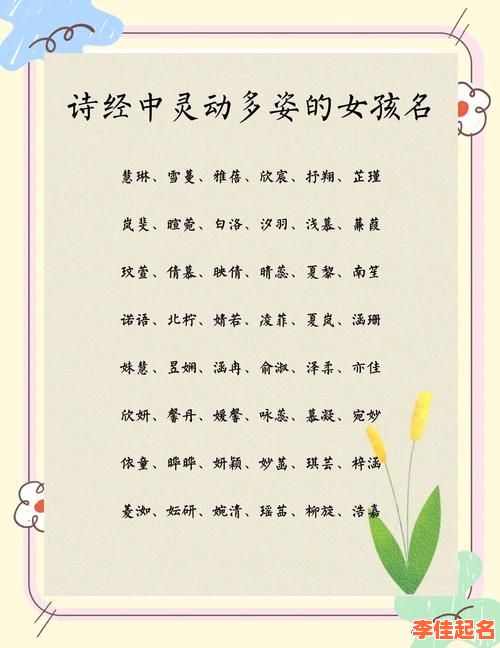 诗经中灵动多姿的女孩名
慧琳、雪蔓、雅蓓、欣宸、抒翔、芷瑾
岚斐、暄菀、白洛、汐羽、浅慕、蒹葭
玟萱、倩慕、映倩、晴蕊、夏黎、南笙
诺语、北柠、婧若、凌菲、夏岚、涵珊
姝慧、昱娴、涵冉、俞淑、泽柔、亦佳
欣妍、馨丹、媛馨、咏蕊、慕凝、宛妙
依童、晔晔、妍颖、妙菡、琪芸、梓涵
菱洳、妘研、婉清、瑶茜、柳旋、浩嘉
李佳起名